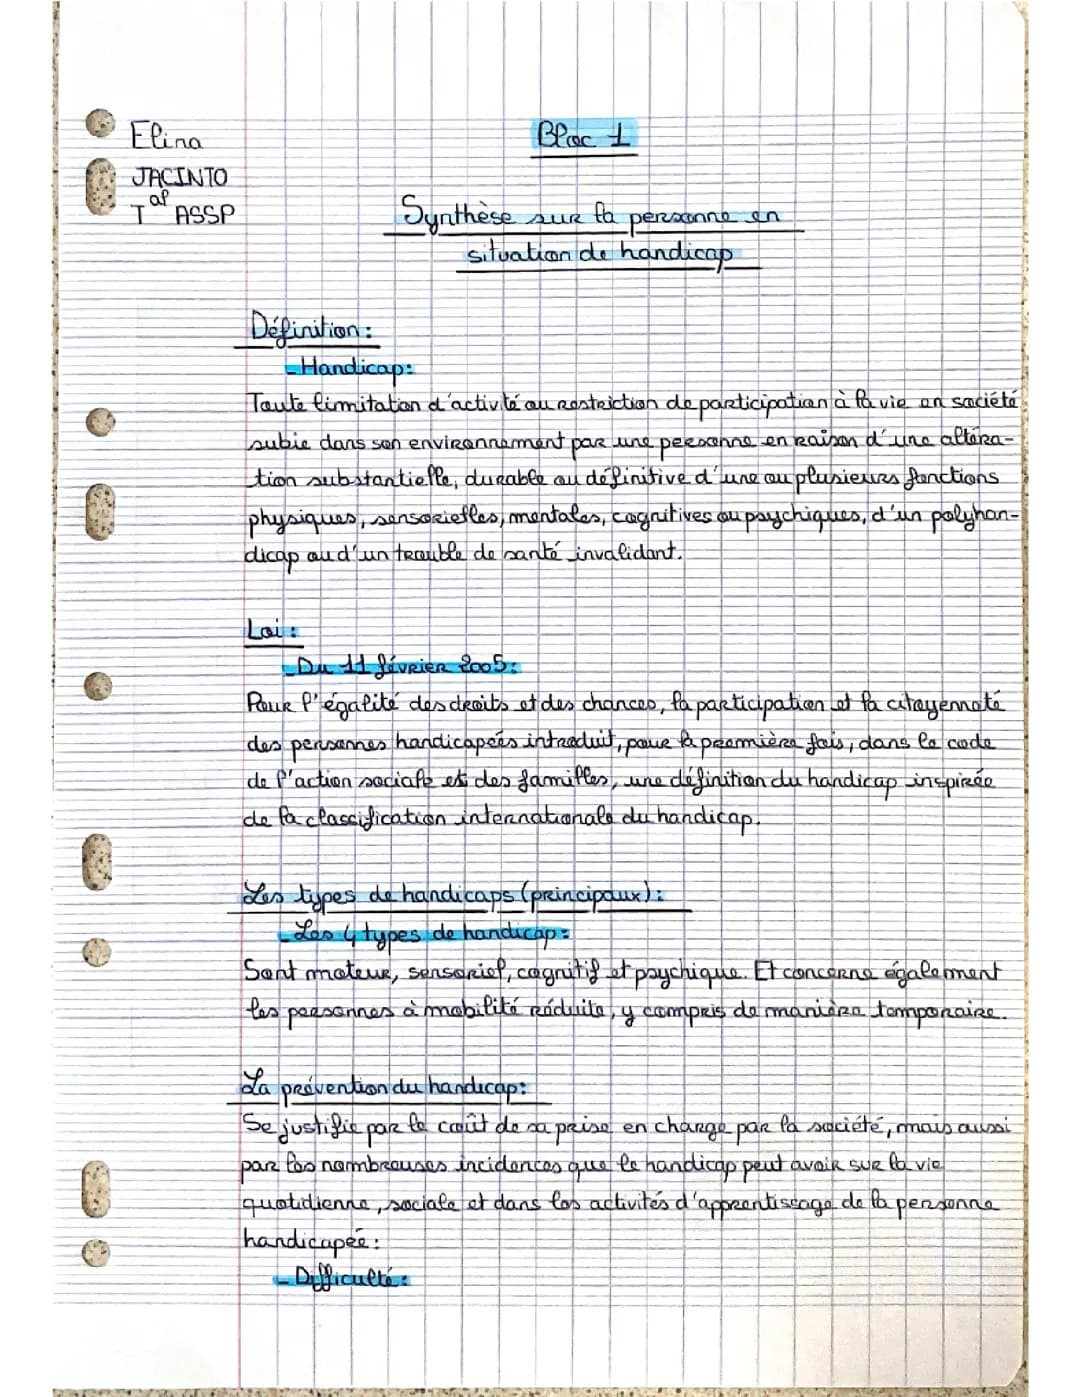 Elina
Bloc 1
JACINTO
Tap ASSP
Synthèse sur la personne en
situation de handicap
Définition :
- Handicap :
Toute limitation d'activité ou restriction de participation à la vie en société
subie dans son environnement par une personne en raison d'une altéra-
tion substantielle, durable ou définitive d'une ou plusieurs fonctions
physiques, sensorielles, mentales, cognitives ou psychiques, d'un polyhan-
dicap ou d'un trouble de santé invalidant.
Loi :
- Du 11 février 2005 :
Pour l'égalité des droits et des chances, la participation et la citoyenneté
des personnes handicapées introduit, pour la première fois, dans le code
de l'action sociale et des familles, une définition du handicap inspirée
de la classification internationale du handicap.
Les types de handicaps (principaux) :
- Les 4 types de handicap :
Sont moteur, sensoriel, cognitif et psychique. Et concerne également
les personnes à mobilité réduite, y compris de manière temporaire.
La prévention du handicap :
Se justifie par le coût de sa prise en charge par la société, mais aussi
par les nombreuses incidences que le handicap peut avoir sur la vie
quotidienne, sociale et dans les activités d'apprentissage de la personne
handicapée :
- Difficulté :